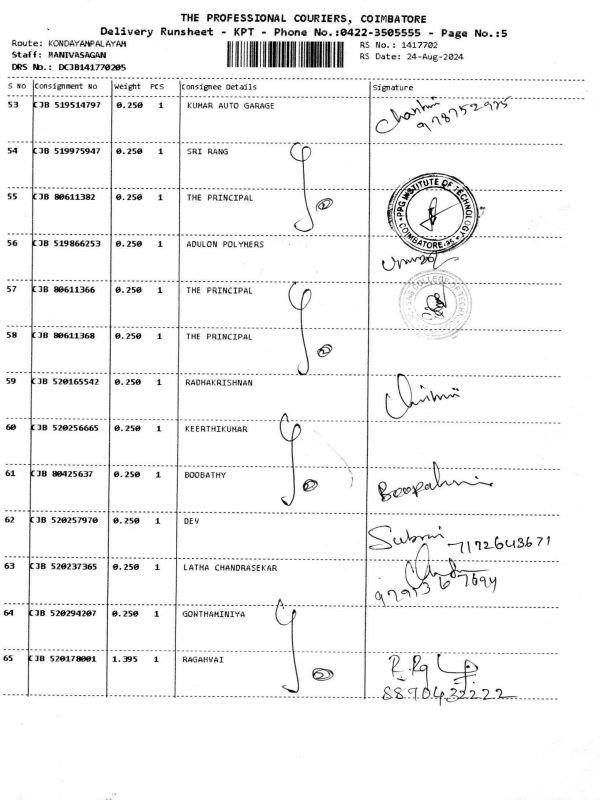 THE PROFESSIONAL COURIERS, COIMBATORE
Delivery Runsheet - KPT - Phone No.:0422-3505555 - Page No.:5
Route: KONDAYAMPALAYAM RS No.: 1417702
Staff: MANIVASAGAN RS Date: 24-Aug-2024
DRS No.: DCJB141770205
S No Consignment No Weight PCS Consignee Details Signature
53 CJB 519514797 0.250 1 KUMAR AUTO GARAGE
9787529
54 CJB 519975947 0.250 1 SRI RANG
55 CJB 80611382 0.250 1 THE PRINCIPAL
PPG INSTITUTE OF TECHNOLOGY
COIMBATORE-35
56 CJB 519866253 0.250 1 ADULON POLYMERS
57 CJB 80611366 0.250 1 THE PRINCIPAL
COLLEGE OF
58 CJB 80611368 0.250 1 THE PRINCIPAL
59 CJB 520165542 0.250 1 RADHAKRISHNAN
60 CJB 520256665 0.250 1 KEERTHIKUMAR
61 CJB 80425637 0.250 1 BOOBATHY
62 CJB 520257970 0.250 1 DEV
7172643671
63 CJB 520237365 0.250 1 LATHA CHANDRASEKAR
64 CJB 520294207 0.250 1 GONTHAMINIYA
65 CJB 520178001 1.395 1 RAGAHVAI
8870432222